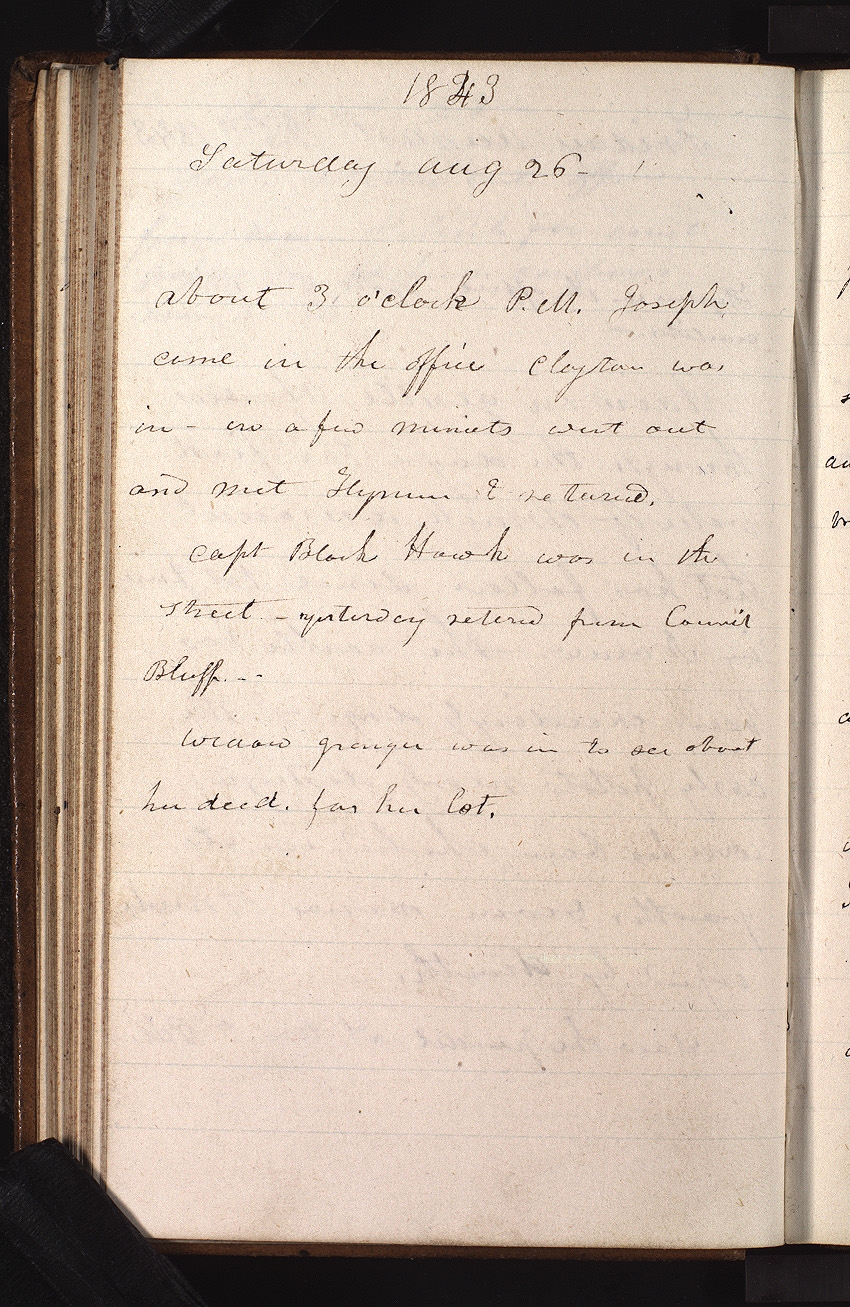 1843
Saturday aug 26-
about 3, o'clock P.M. Joseph
came in the office Clayton was
in - in a few miniets went out
and met Hyrum & returned.
capt Black Hawk was in the
street - yesterday retured from Council
Bluff. --
widow granger was in to see about
her deed. for her lot.